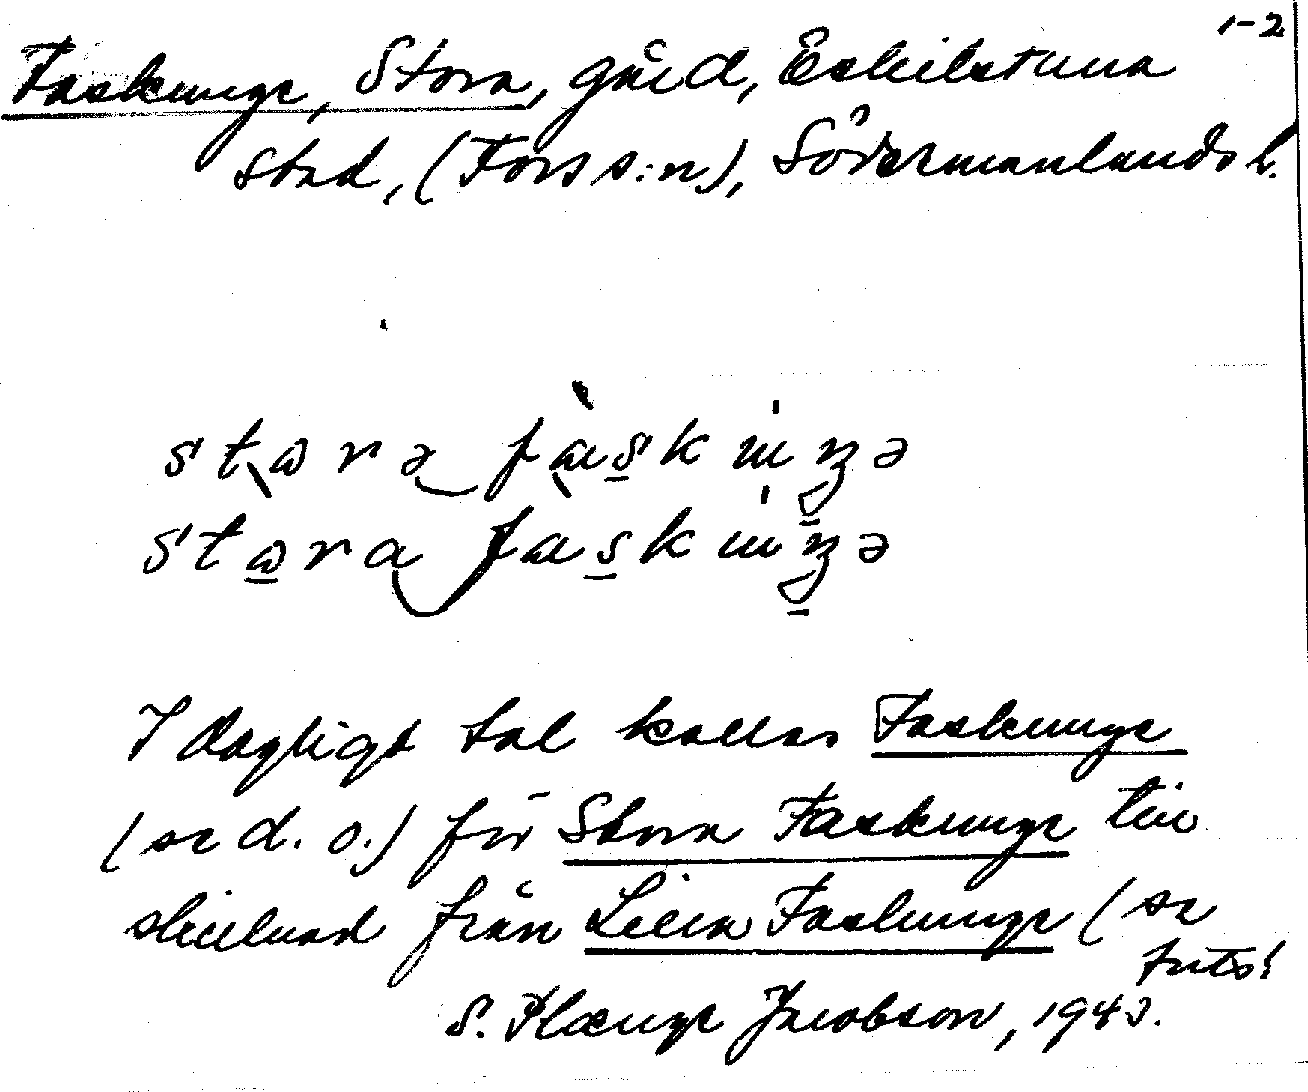 1-2
Faskunge, Stora, gård, Eskilstuna
stad, (Fors s:n), Södermanlands l.
I dagligt tal kallas Faskunge
(se d. o.) för Stora Faskunge till
skillnad från Lilla Faskunge (se
forts!
S. Plænge Jacobson, 1943.